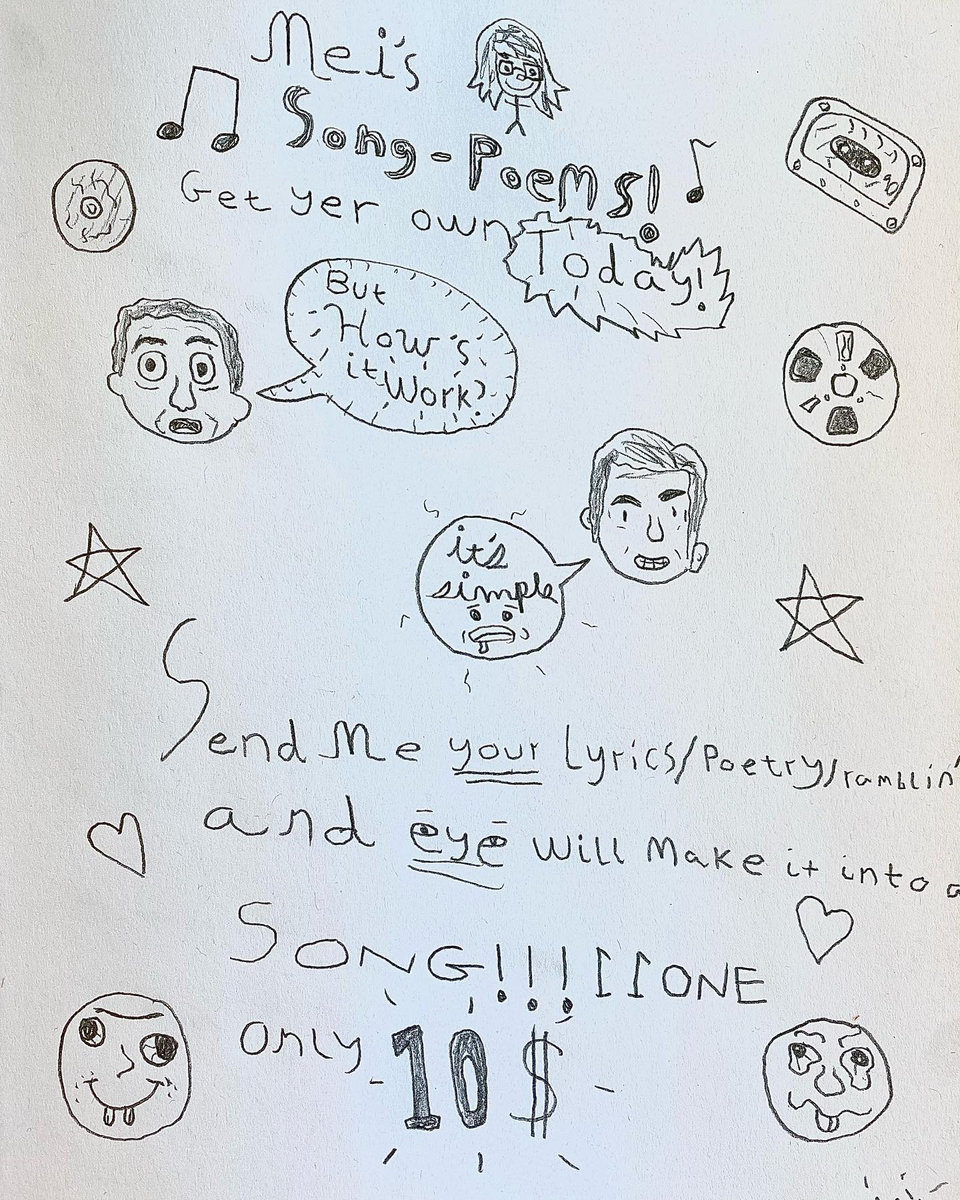 Mei's
Song-Poems!
Get yer own
Today!
But
How's
it Work?
it's
simple
Send Me your Lyrics/Poetry/ramblin'
and eye will make it into a
SONG!!!11ONE
only 10$